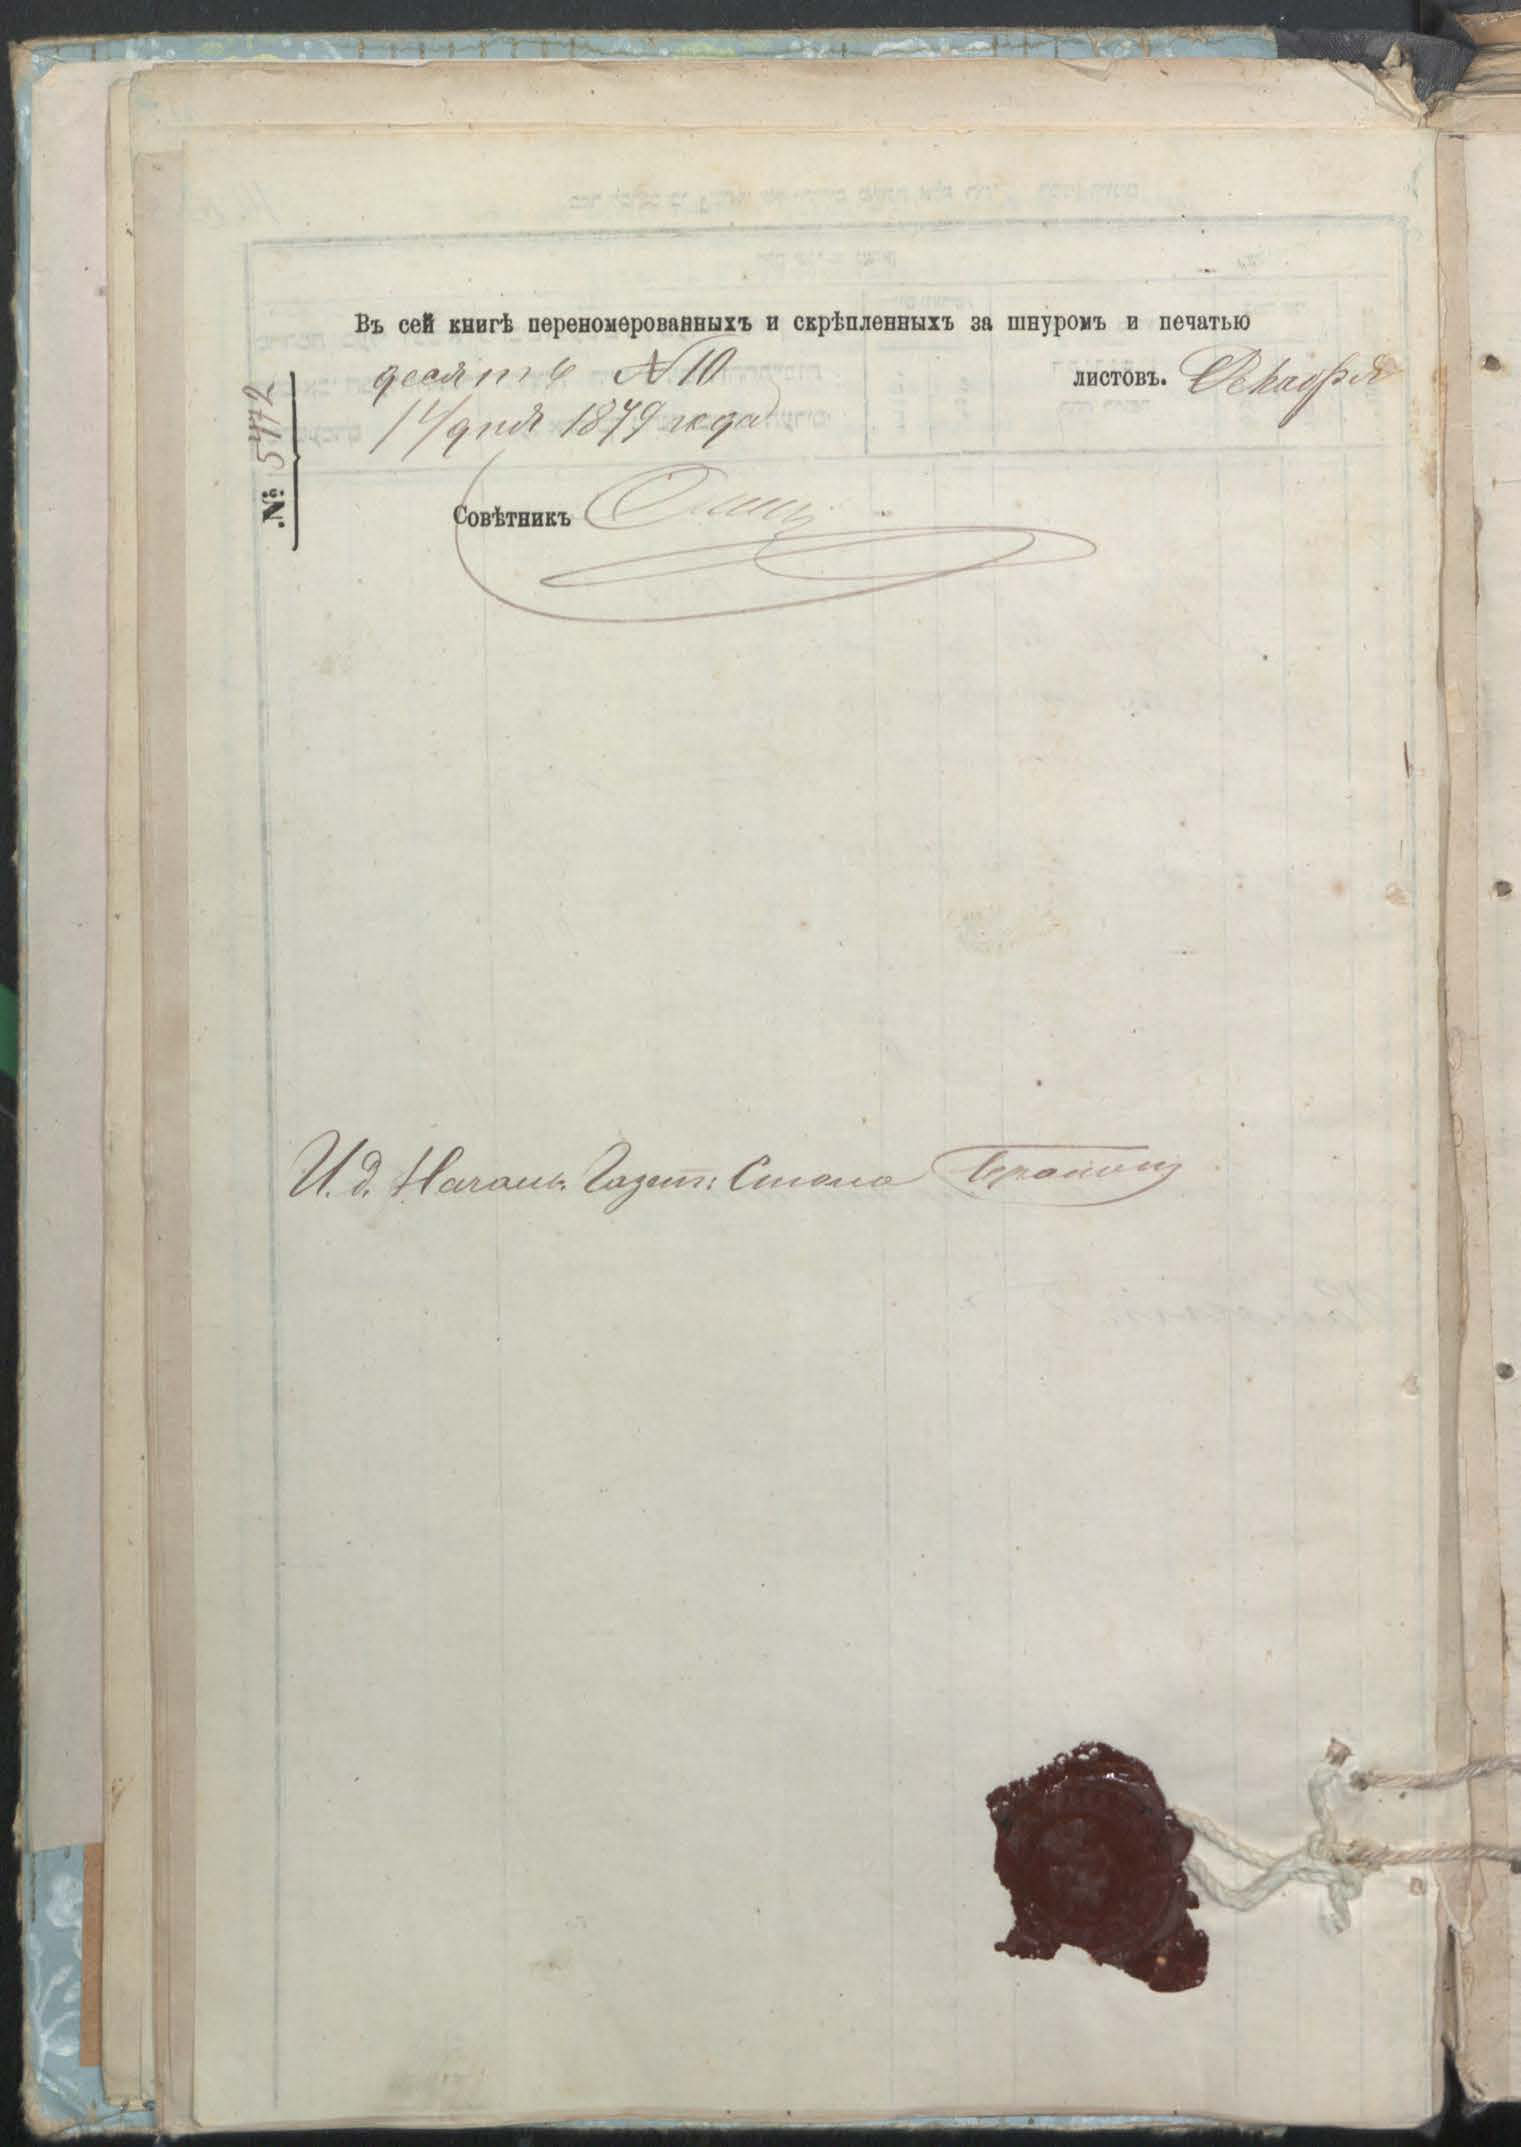 Въ сей книгѣ переномерованныхъ и скрѣпленныхъ за шнуромъ и печатью
десять № 10 листовъ. Декабря
14 дня 1879 года
№ 5472
Совѣтникъ
И. д. Начальн. Газетн: Стола